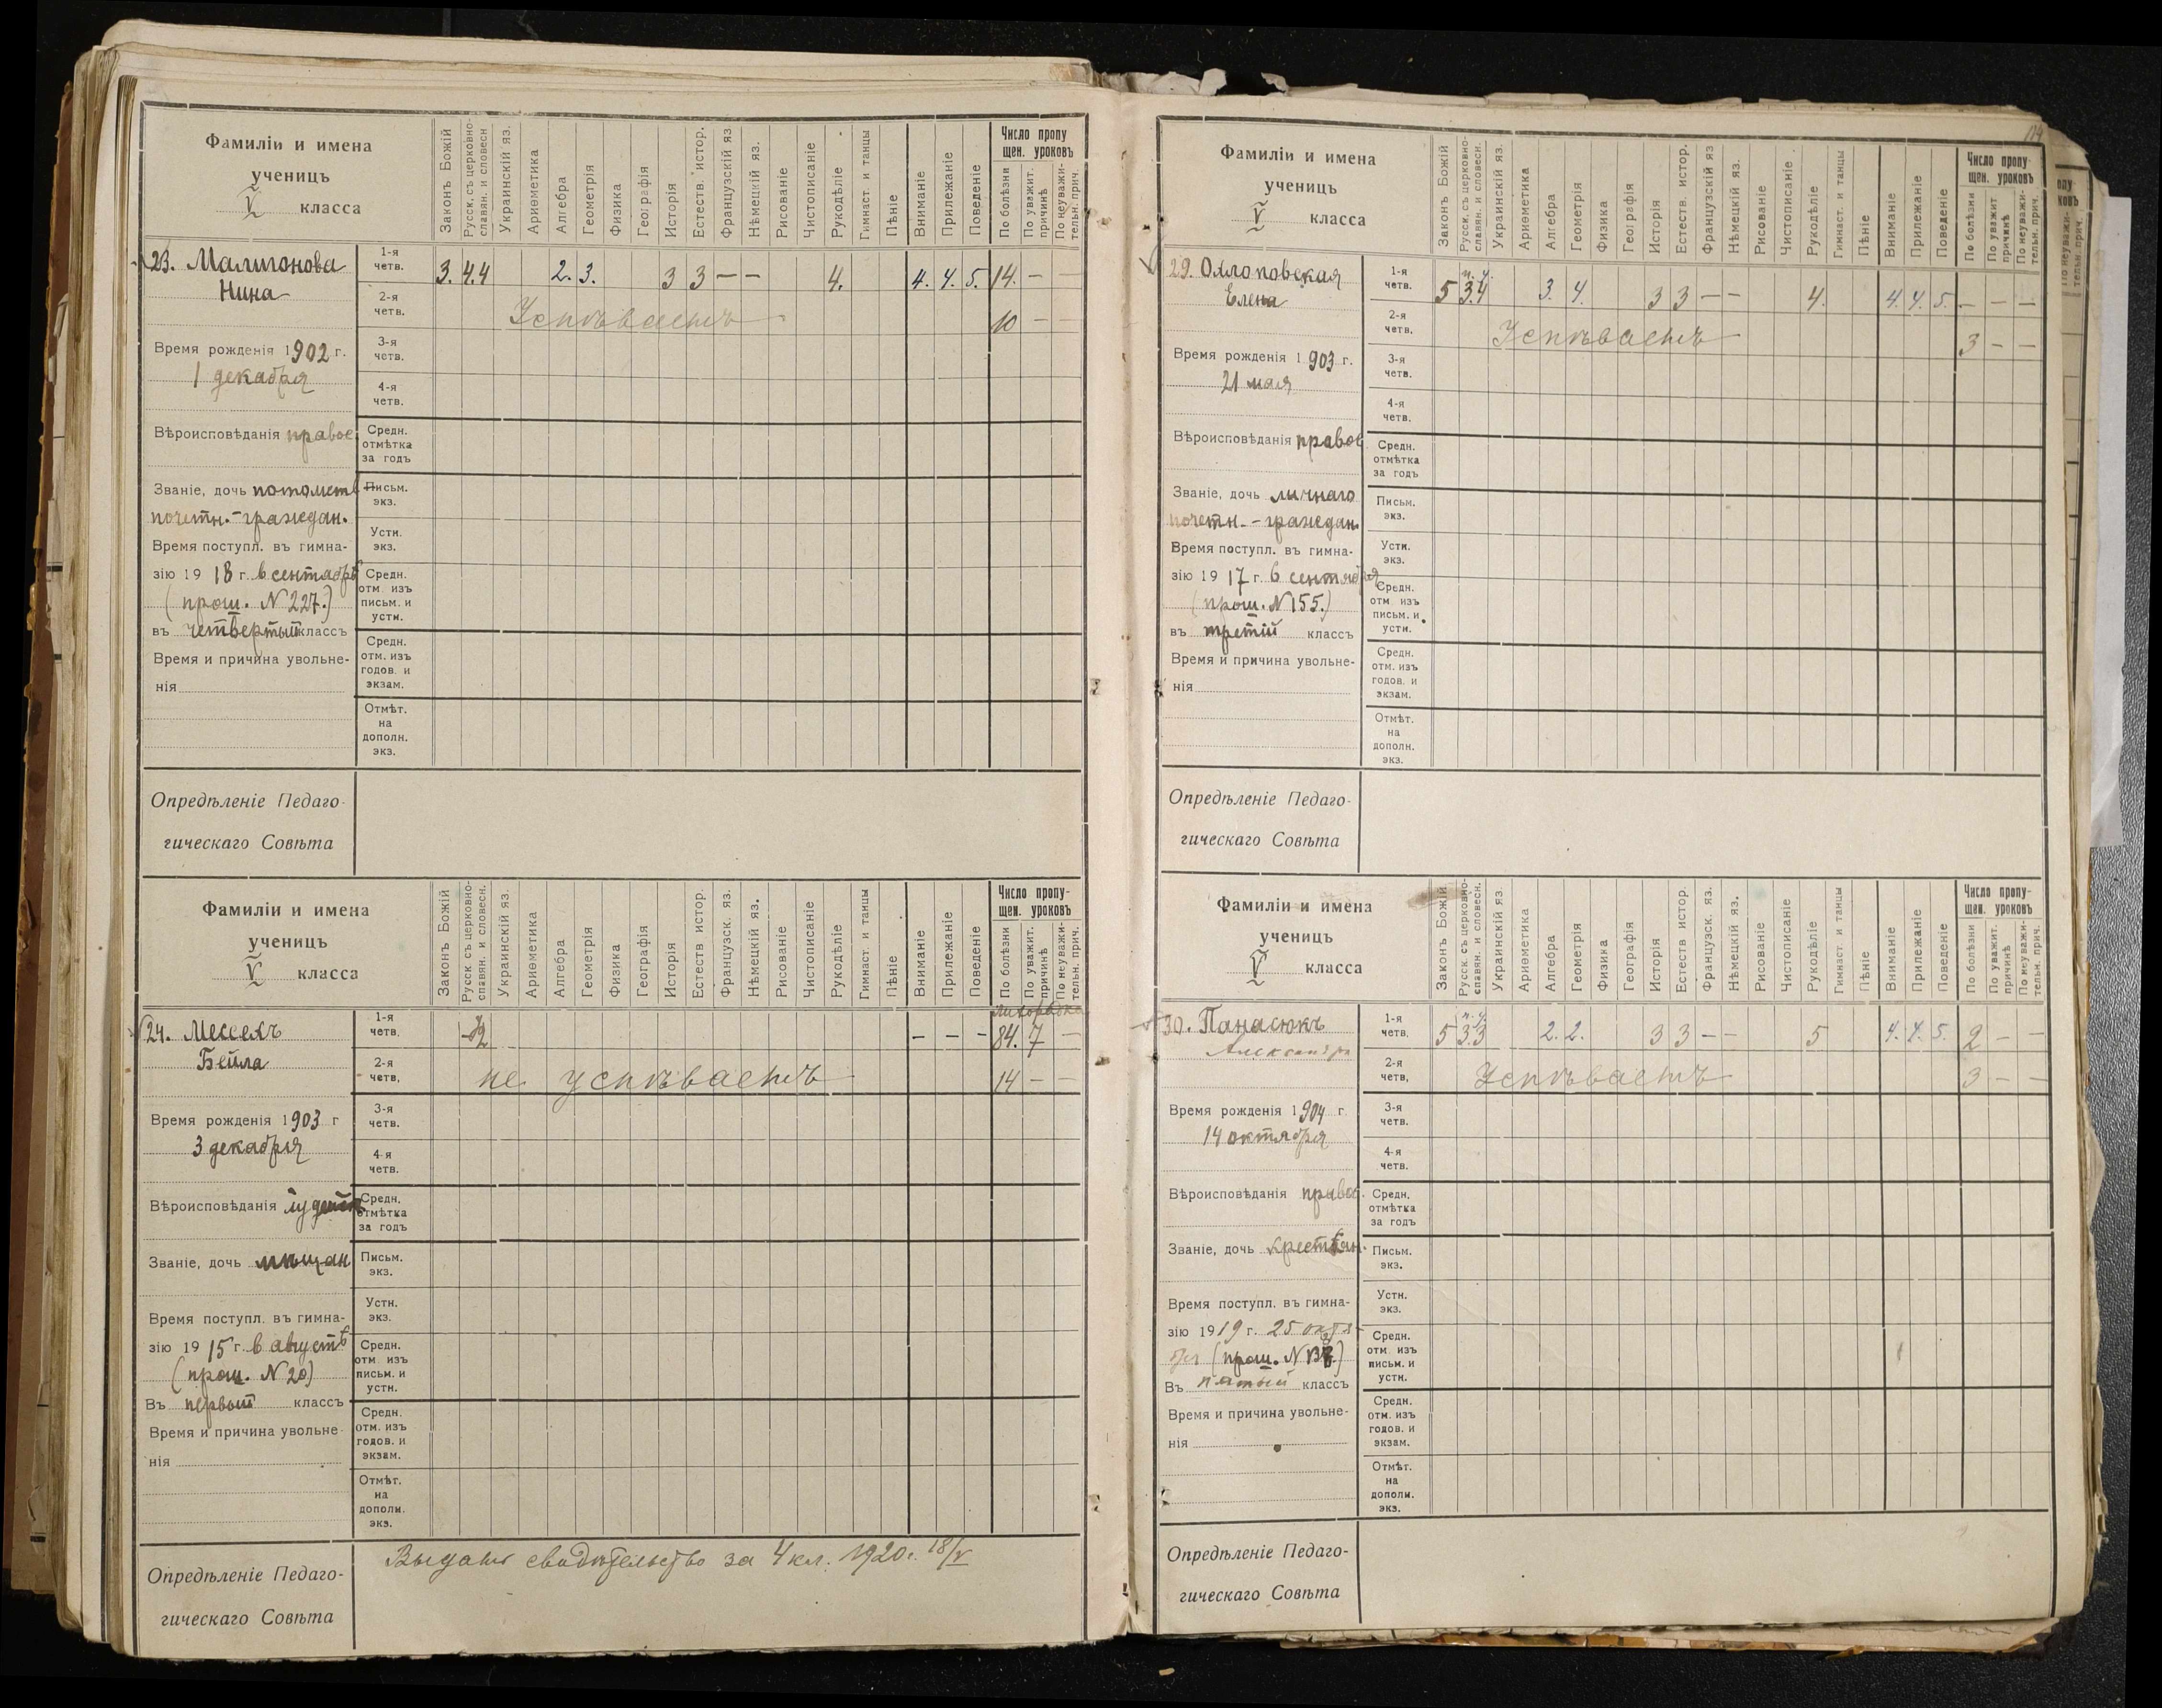 Фамиліи и имена
ученицъ
V класса
Законъ Божій
Русск. съ церковно-
славян. и словесн
Украинскій яз.
Ариѳметика
Алгебра
Геометрія
Физика
Географія
Исторія
Естеств. истор.
Французскій яз
Нѣмецкій яз.
Рисованіе
Чистописаніе
Рукодѣліе
Гимнаст. и танцы
Пѣніе
Вниманіе
Прилежаніе
Поведеніе
Число пропу
щен. уроковъ
По болѣзни
По уважит.
причинѣ
По неуважи-
тельн. прич.
23. Малигонова
Нина
1-я четв. 3. 4.4 2. 3. 3 3 — — 4. 4. 4. 5. 14. — —
2-я четв. Успѣваетъ 10 — —
3-я четв.
4-я четв.
Время рожденія 1902 г.
1 декабря
Вѣроисповѣданія правос
Средн.
отмѣтка
за годъ
Званіе, дочь потомств
почетн.-граждан.
Письм.
экз.
Устн.
экз.
Время поступл. въ гимна-
зію 1918 г. въ сентябрѣ
(прош. N 227.)
въ четвертый классъ
Средн.
отм. изъ
письм. и
устн.
Время и причина увольне-
нія
Средн.
отм. изъ
годов. и
экзам.
Отмѣт.
на
дополн.
экз.
Опредѣленіе Педаго-
гическаго Совѣта
Фамиліи и имена
ученицъ
V класса
Законъ Божій
Русск съ церковно-
славян. и словесн.
Украинскій яз.
Ариѳметика
Алгебра
Геометрія
Физика
Географія
Исторія
Естеств истор.
Французск. яз.
Нѣмецкій яз.
Рисованіе
Чистописаніе
Рукодѣліе
Гимнаст и танцы
Пѣніе
Вниманіе
Прилежаніе
Поведеніе
Число пропу-
щен. уроковъ
По болѣзни
По уважит.
причинѣ
По неуважи-
тельн. прич.
лихорадка
24. Мессель
Бейла
1-я четв. 2 — — — 84. 7 —
2-я четв, не успѣваетъ 14 — —
3-я четв.
4-я четв.
Время рожденія 1903 г
3 декабря
Вѣроисповѣданія іудейск
Средн.
отмѣтка
за годъ
Званіе, дочь мѣщан
Письм.
экз.
Устн.
экз.
Время поступл. въ гимна-
зію 1915 г. въ августѣ
(прош. N 20)
Въ первый классъ
Средн.
отм изъ
письм. и
устн.
Время и причина увольне-
нія
Средн.
отм. изъ
годов. и
экзам.
Отмѣт.
на
дополн.
экз.
Опредѣленіе Педаго-
гическаго Совѣта
Выдано свидѣтельство за 4 кл. 1920 г. 18/V
Фамиліи и имена
ученицъ
V класса
Законъ Божій
Русск. съ церковно-
славян. и словесн.
Украинскій яз.
Ариѳметика
Алгебра
Геометрія
Физика
Географія
Исторія
Естеств. истор.
Французскій яз
Нѣмецкій яз.
Рисованіе
Чистописаніе
Рукодѣліе
Гимнаст. и танцы
Пѣніе
Вниманіе
Прилежаніе
Поведеніе
Число пропу-
щен. уроковъ
По болѣзни
По уважит
причинѣ
По неуважи-
тельн. прич.
29.
Елена
1-я четв. 5 3.4 3. 4. 3 3 — — 4. 4. 4. 5. — — —
2-я четв, Успѣваетъ 3 — —
3-я четв.
4-я четв.
Время рожденія 1903 г.
21 мая
Вѣроисповѣданія правос
Средн.
отмѣтка
за годъ
Званіе, дочь личнаго
почетн.-граждан.
Письм.
экз.
Устн.
экз.
Время поступл. въ гимна-
зію 1917 г. въ сентября
(прош. N 155.)
въ третій классъ
Средн.
отм изъ
письм. и
устн.
Время и причина увольне-
нія
Средн.
отм. изъ
годов. и
экзам.
Отмѣт.
на
дополн.
экз.
Опредѣленіе Педаго-
гическаго Совѣта
Фамиліи и имена
ученицъ
V класса
Законъ Божій
Русск. съ церковно-
славян. и словесн.
Украинскій яз.
Ариѳметика
Алгебра
Геометрія
Физика
Географія
Исторія
Естеств истор
Французск. яз.
Нѣмецкій яз.
Рисованіе
Чистописаніе
Рукодѣліе
Гимнаст. и танцы
Пѣніе
Вниманіе
Прилежаніе
Поведеніе
Число пропу-
щен. уроковъ
По болѣзни
По уважит.
причинѣ
По неуважи-
тельн. прич.
30. Панасюкъ
Александра
1-я четв, 5 3.3 2. 2. 3 3 — — 5 4. 4. 5. 2 — —
2-я четв, Успѣваетъ 3 — —
3-я четв.
4-я четв.
Время рожденія 1904 г.
14 октября
Вѣроисповѣданія правос.
Средн.
отмѣтка
за годъ
Званіе, дочь крестьян.
Письм.
экз.
Устн.
экз.
Время поступл. въ гимна-
зію 1919 г. 25 октя-
бря (прош. N
Въ пятый классъ
Средн.
отм. изъ
письм. и
устн.
Время и причина увольне-
нія
Средн.
отм. изъ
годов. и
экзам.
Отмѣт.
на
дополн.
экз.
Опредѣленіе Педаго-
гическаго Совѣта